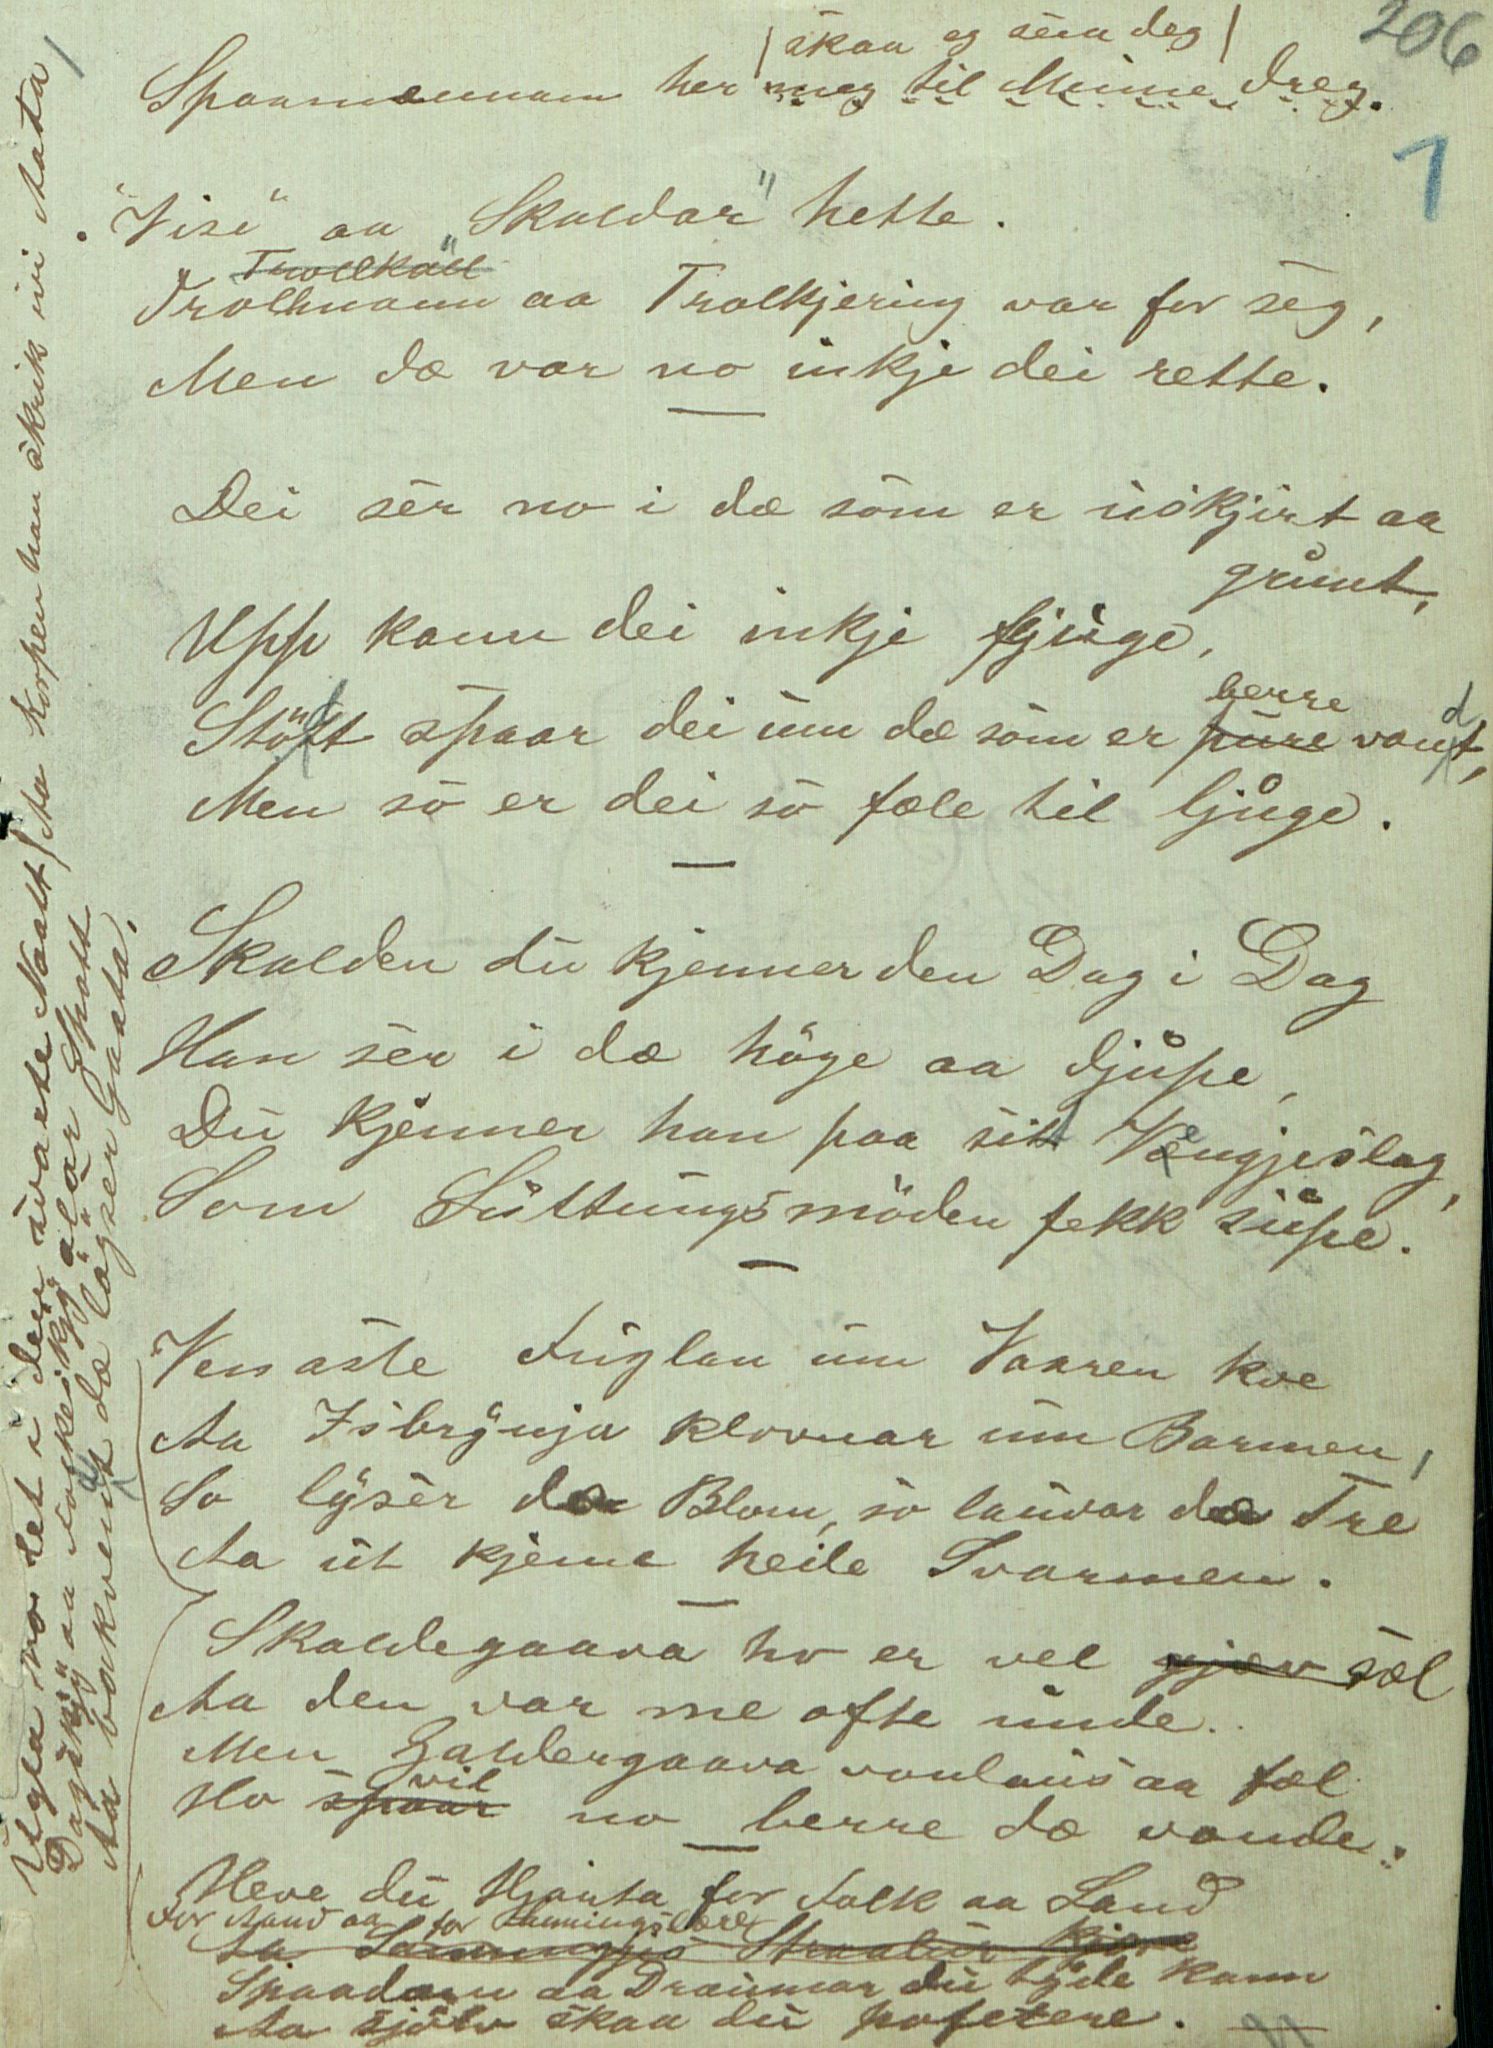 206
1
skaa eg sein deg
Spaamennann her meg til Minne dreg.
"Vise" aa "Skaldar" hette.
Trollkall
Trollmann aa Trolkjering var for seg,
Men dæ var no inkje dei rette.
Dei ser no i dæ som er uskjirt aa
grunt,
Upp kann dei inkje fljuge,
berre
Stött spaar dei um dæ som er pure vondt,
Men so er dei so fæle til ljuge.
Skalden du kjenner den Dag i Dag
Han ser i dæ höge aa djupe,
Du kjenner han paa sitt Vengjeslag,
Som Suttungsmöden fekk supe.
Venaste Fuglan um Vaaren kve
Aa Isbrynja klovnar um Barmen,
So lyser dæ Blom, so lauvar dæ Tre
Aa ut kjeme heile Svarmen.
Skaldegaava ho er vel gjæv sæl
Aa den var me ofte unde.
Men Galdergaava vonlaus aa fæl
vil
Ho spaar no berre dæ vonde.
Heve du Hjarta for Folk aa Land
For Aand aa for
Aa Straalar kjære
Spaadom aa Draumar du tyde kann
Aa sjölv skaa du profetere.
Ugla no set i den svarte Naatt / Aa Korpen han skrik ivi Aata /
Aa bakvendt dæ lagser Gaata.